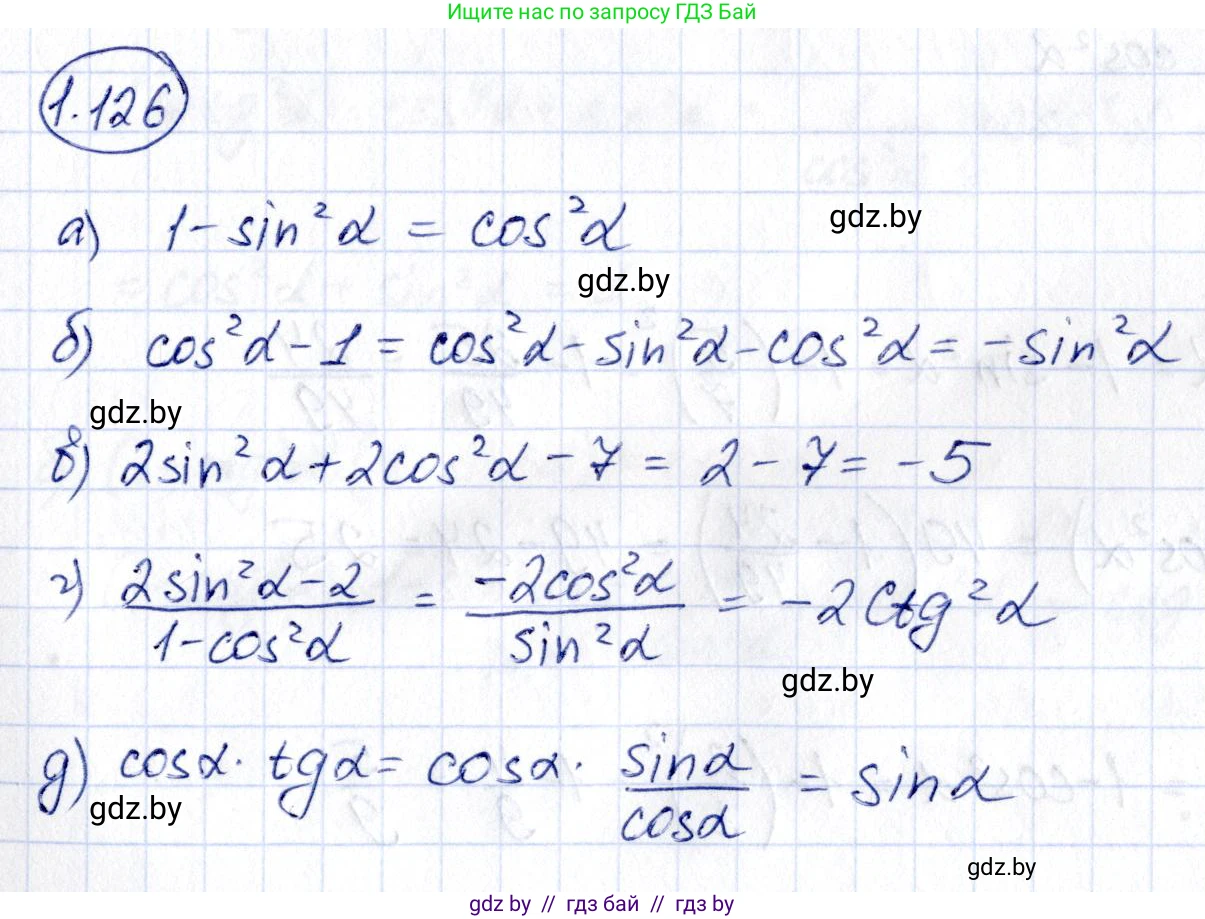 Ищите нас по запросу ГДЗ Бай
1.126
а) 1 - sin²α = cos²α
gdz.by
gdz.by
б) cos²α - 1 = cos²α - sin²α - cos²α = - sin²α
gdz.by
в) 2sin²α + 2cos²α - 7 = 2 - 7 = -5
г) (2sin²α - 2)/(1 - cos²α) = (-2cos²α)/(sin²α) = -2ctg²α
gdz.by
д) cosα · tgα = cosα · sinα/cosα = sinα
gdz.by
gdz.by
gdz.by // гдз бай // гдз by